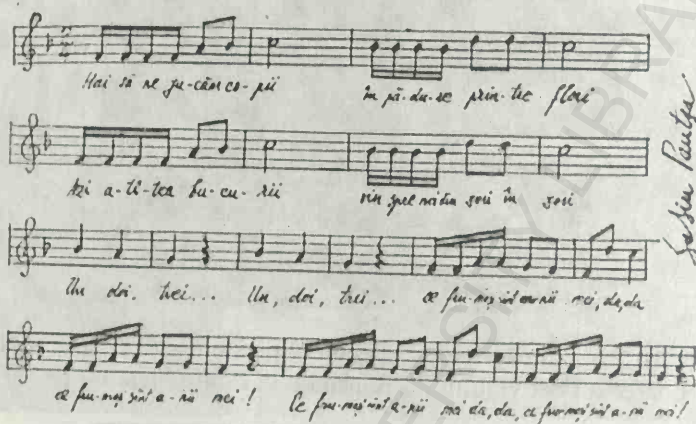 Hai să ne ju-căm co-pii în pă-du-re prin-tre flori
Azi a-tî-tea bu-cu-rii vin spre noi din zori în zori
Un doi, trei... Un, doi, trei... ce fru-moși sînt anii mei, da, da
ce fru-moși sînt a-nii mei! Ce fru-moși sînt a-nii mei da, da, ce fru-moși sînt a-nii mei!
LIBRA